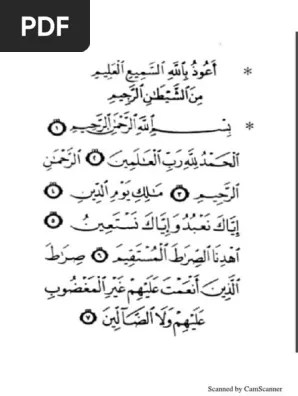 PDF
* أَعُوذُ بِاللَّهِ السَّمِيعِ الْعَلِيمِ
مِنَ الشَّيْطَانِ الرَّجِيمِ
* بِسْمِ اللَّهِ الرَّحْمَٰنِ الرَّحِيمِ ١
الْحَمْدُ لِلَّهِ رَبِّ الْعَالَمِينَ ٢ الرَّحْمَٰنِ
الرَّحِيمِ ٣ مَالِكِ يَوْمِ الدِّينِ ٤
إِيَّاكَ نَعْبُدُ وَإِيَّاكَ نَسْتَعِينُ ٥
اهْدِنَا الصِّرَاطَ الْمُسْتَقِيمَ ٦ صِرَاطَ
الَّذِينَ أَنْعَمْتَ عَلَيْهِمْ غَيْرِ الْمَغْضُوبِ
عَلَيْهِمْ وَلَا الضَّالِّينَ ٧
Scanned by CamScanner